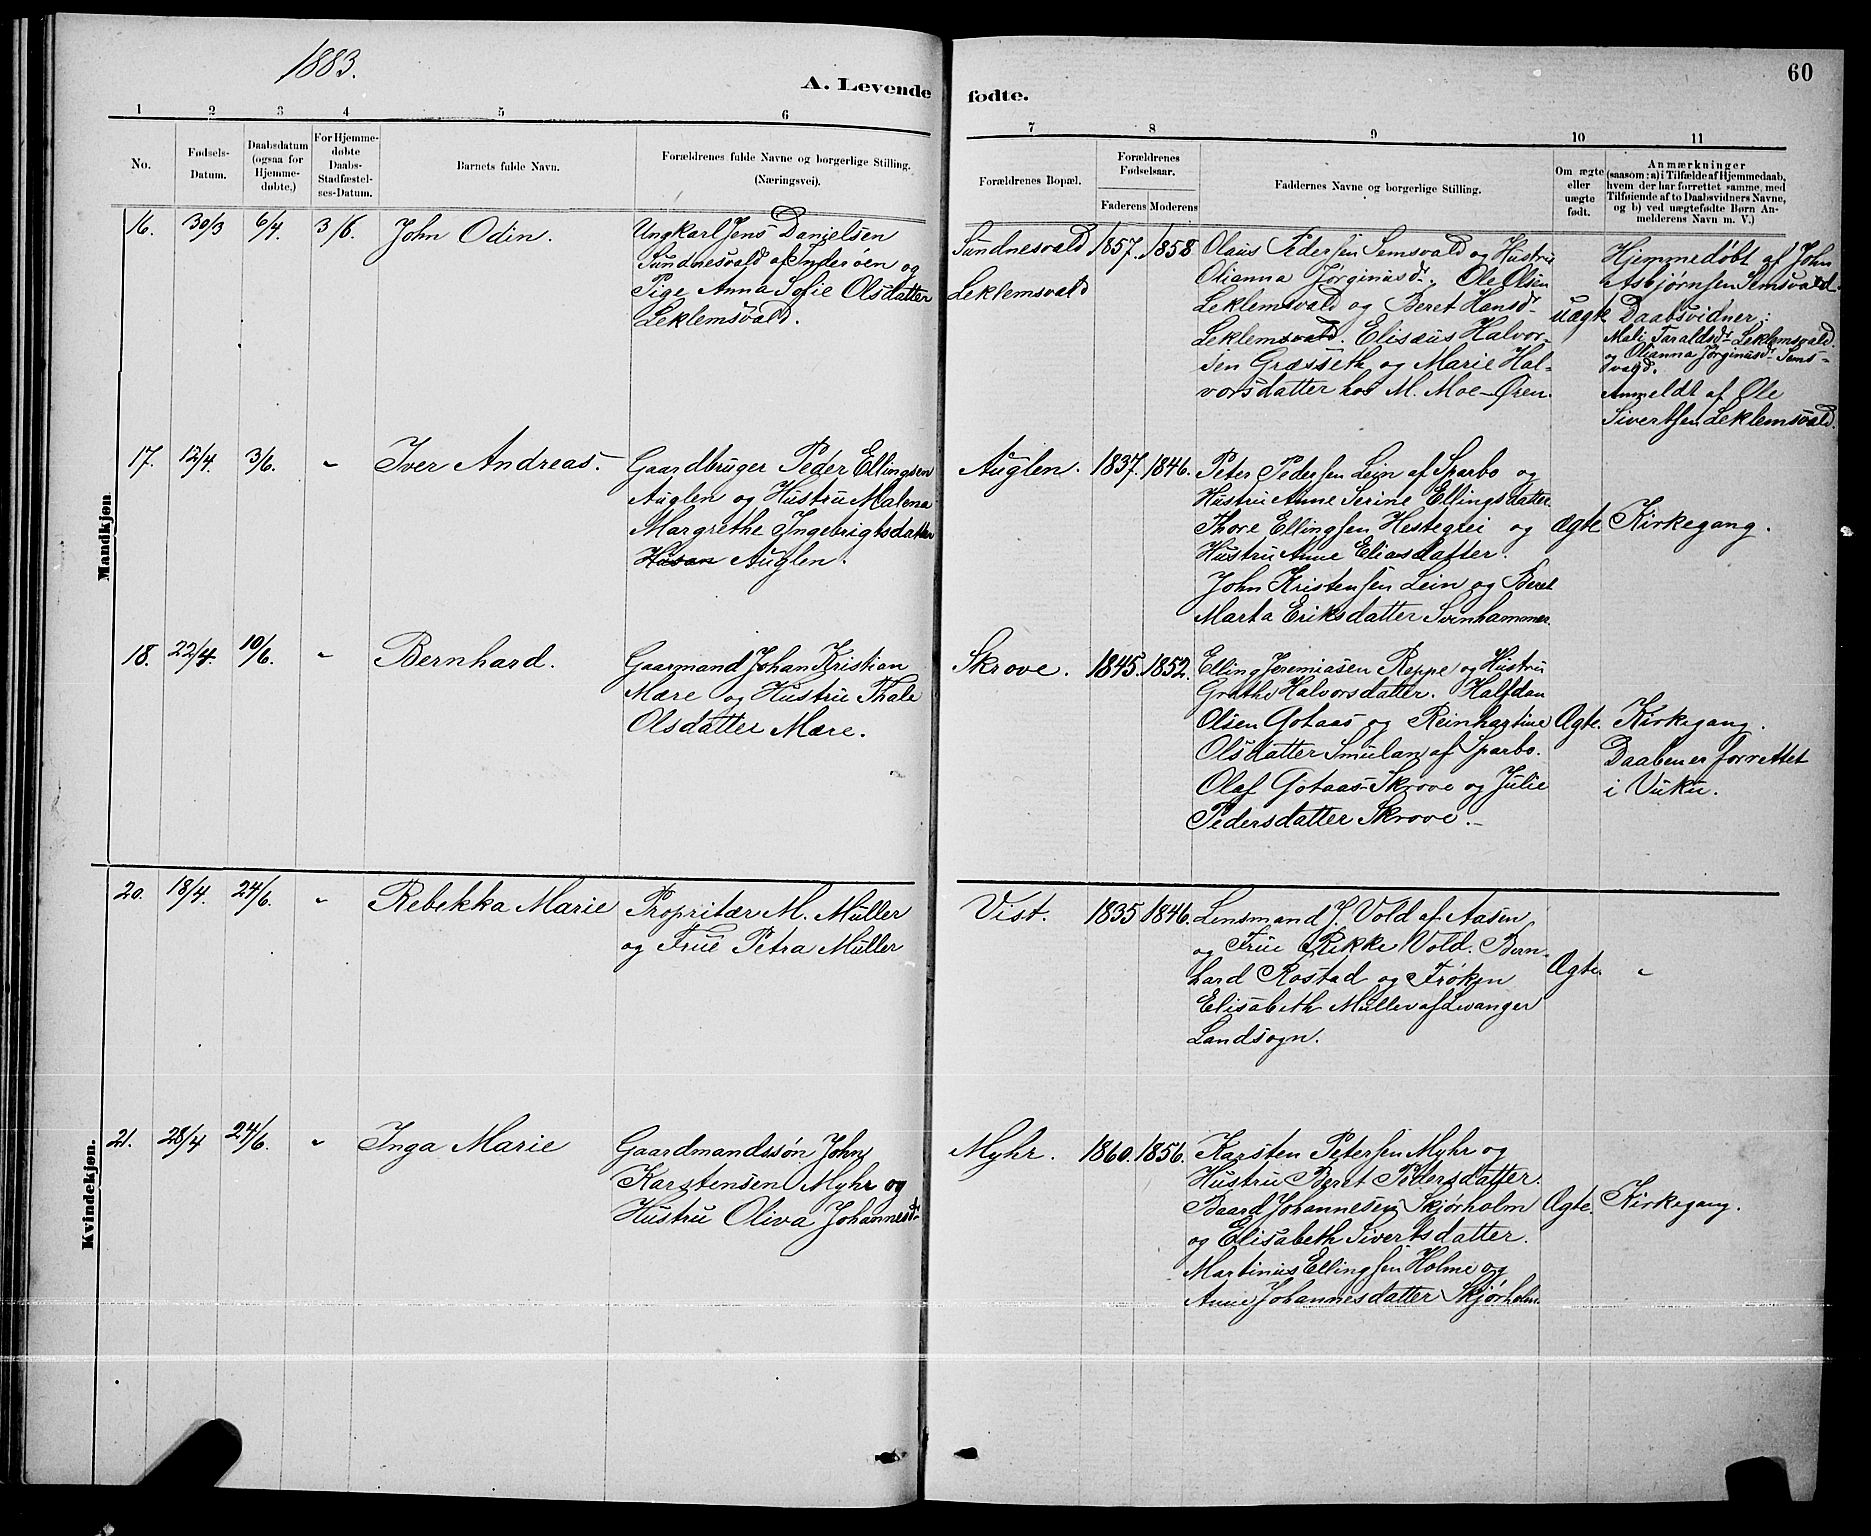 1883.
A. Levende fødte.
60
1 2 3 4 5 6 7 8 9 10 11
No.
Fødsels-
Datum.
Daabsdatum
(ogsaa for
Hjemme-
døbte.)
For Hjemme-
døbte
Daabs-
Stadfæstel-
ses-Datum.
Barnets fulde Navn.
Forældrenes fulde Navne og borgerlige Stilling.
(Næringsvei).
Forældrenes Bopæl.
Forældrenes
Fødselsaar.
Faderens Moderens
Faddernes Navne og borgerlige Stilling.
Om ægte
eller
uægte
født.
Anmærkninger
(saasom: a) i Tilfælde af Hjemmedaab,
hvem der har forrettet samme, med
Tilføiende af to Daabsvidners Navne,
og b) ved uægtefødte Børn An-
melderens Navn m. V.)
Mandkjøn
16. 30/3 6/4. 3/6. John Odin.
Ungkarl Jens Danielsen
Sundnesvald af Inderøen og
Pige Anna Sofie Olsdatter
Leklemsvald.
Sundnesvald
Leklemsvald
1857. 1858
Olaus Pedersen Semsvald og Hustru
Olianna Jørginusdr. Ole Olsen
Leklemsvald og Beret Hansdr
Leklemsvald. Elisæus Halvor-
sen Græsseth og Marie Hal-
vorsdatter hos M. Moe-Øren.
uægte
Hjemmedøbt af John
Asbjørnsen Semsvald.
Daabsvidner:
Mali Taraldsdr Leklemsvald.
og Olianna Jørginusdr Sems-
vald.
Anmeldt af Ole
Sivertsen Leklemsvald.
17. 12/4. 3/6. " Iver Andreas.
Gaardbruger Peder Ellingsen
Auglen og Hustru Malena
Margrethe Ingebrigtsdatter
Husan Auglen.
Auglen. 1837. 1846.
Peter Pedersen Lein af Sparbo og
Hustru Anne Serine Ellingsdatter
Thore Ellingsen Hestegrei og
Hustru Anne Eliasdatter.
John Kristensen Lein og Beret
Marta Eriksdatter Svinhammer.
ægte Kirkegang.
18. 22/4. 10/6. " Bernhard.
Gaarmand Johan Kristian
Mære og Hustru Thale
Olsdatter Mære.
Skrove. 1845. 1852.
Elling Jeremiasen Reppe og Hustru
Grethe Halvorsdatter. Halfdan
Olsen Gotaas og Reinhartine
Olsdatter Smulan af Sparbo.
Olaf Gotaas-Skrove og Julie
Pedersdatter Skrove.-
Ægte.
Kirkegang.
Daaben er forrettet
i Vuku.
Kvindekjøn.
20. 18/4. 24/6. " Rebekka Marie
Propritær M. Müller
og Frue Petra Müller
Vist. 1835 1846.
Lensmand J. Vold af Aasen
og Frue Rikke Vold. Bern-
hard Rostad og Frøken
Elisabeth Müller af Levanger
Landsogn.
Ægte. "
21. 28/4 24/6. " Inga Marie
Gaardmandssøn John
Karstensen Myhr og
Hustru Oliva Johannesdr.
Myhr. 1860. 1856.
Karsten Petersen Myhr og
Hustru Beret Petersdatter.
Baard Johannesen Skjørholm
og Elisabeth Sivertsdatter.
Martinus Ellingsen Holme og
Anne Johannesdatter Skjørholm
Ægte. Kirkegang.